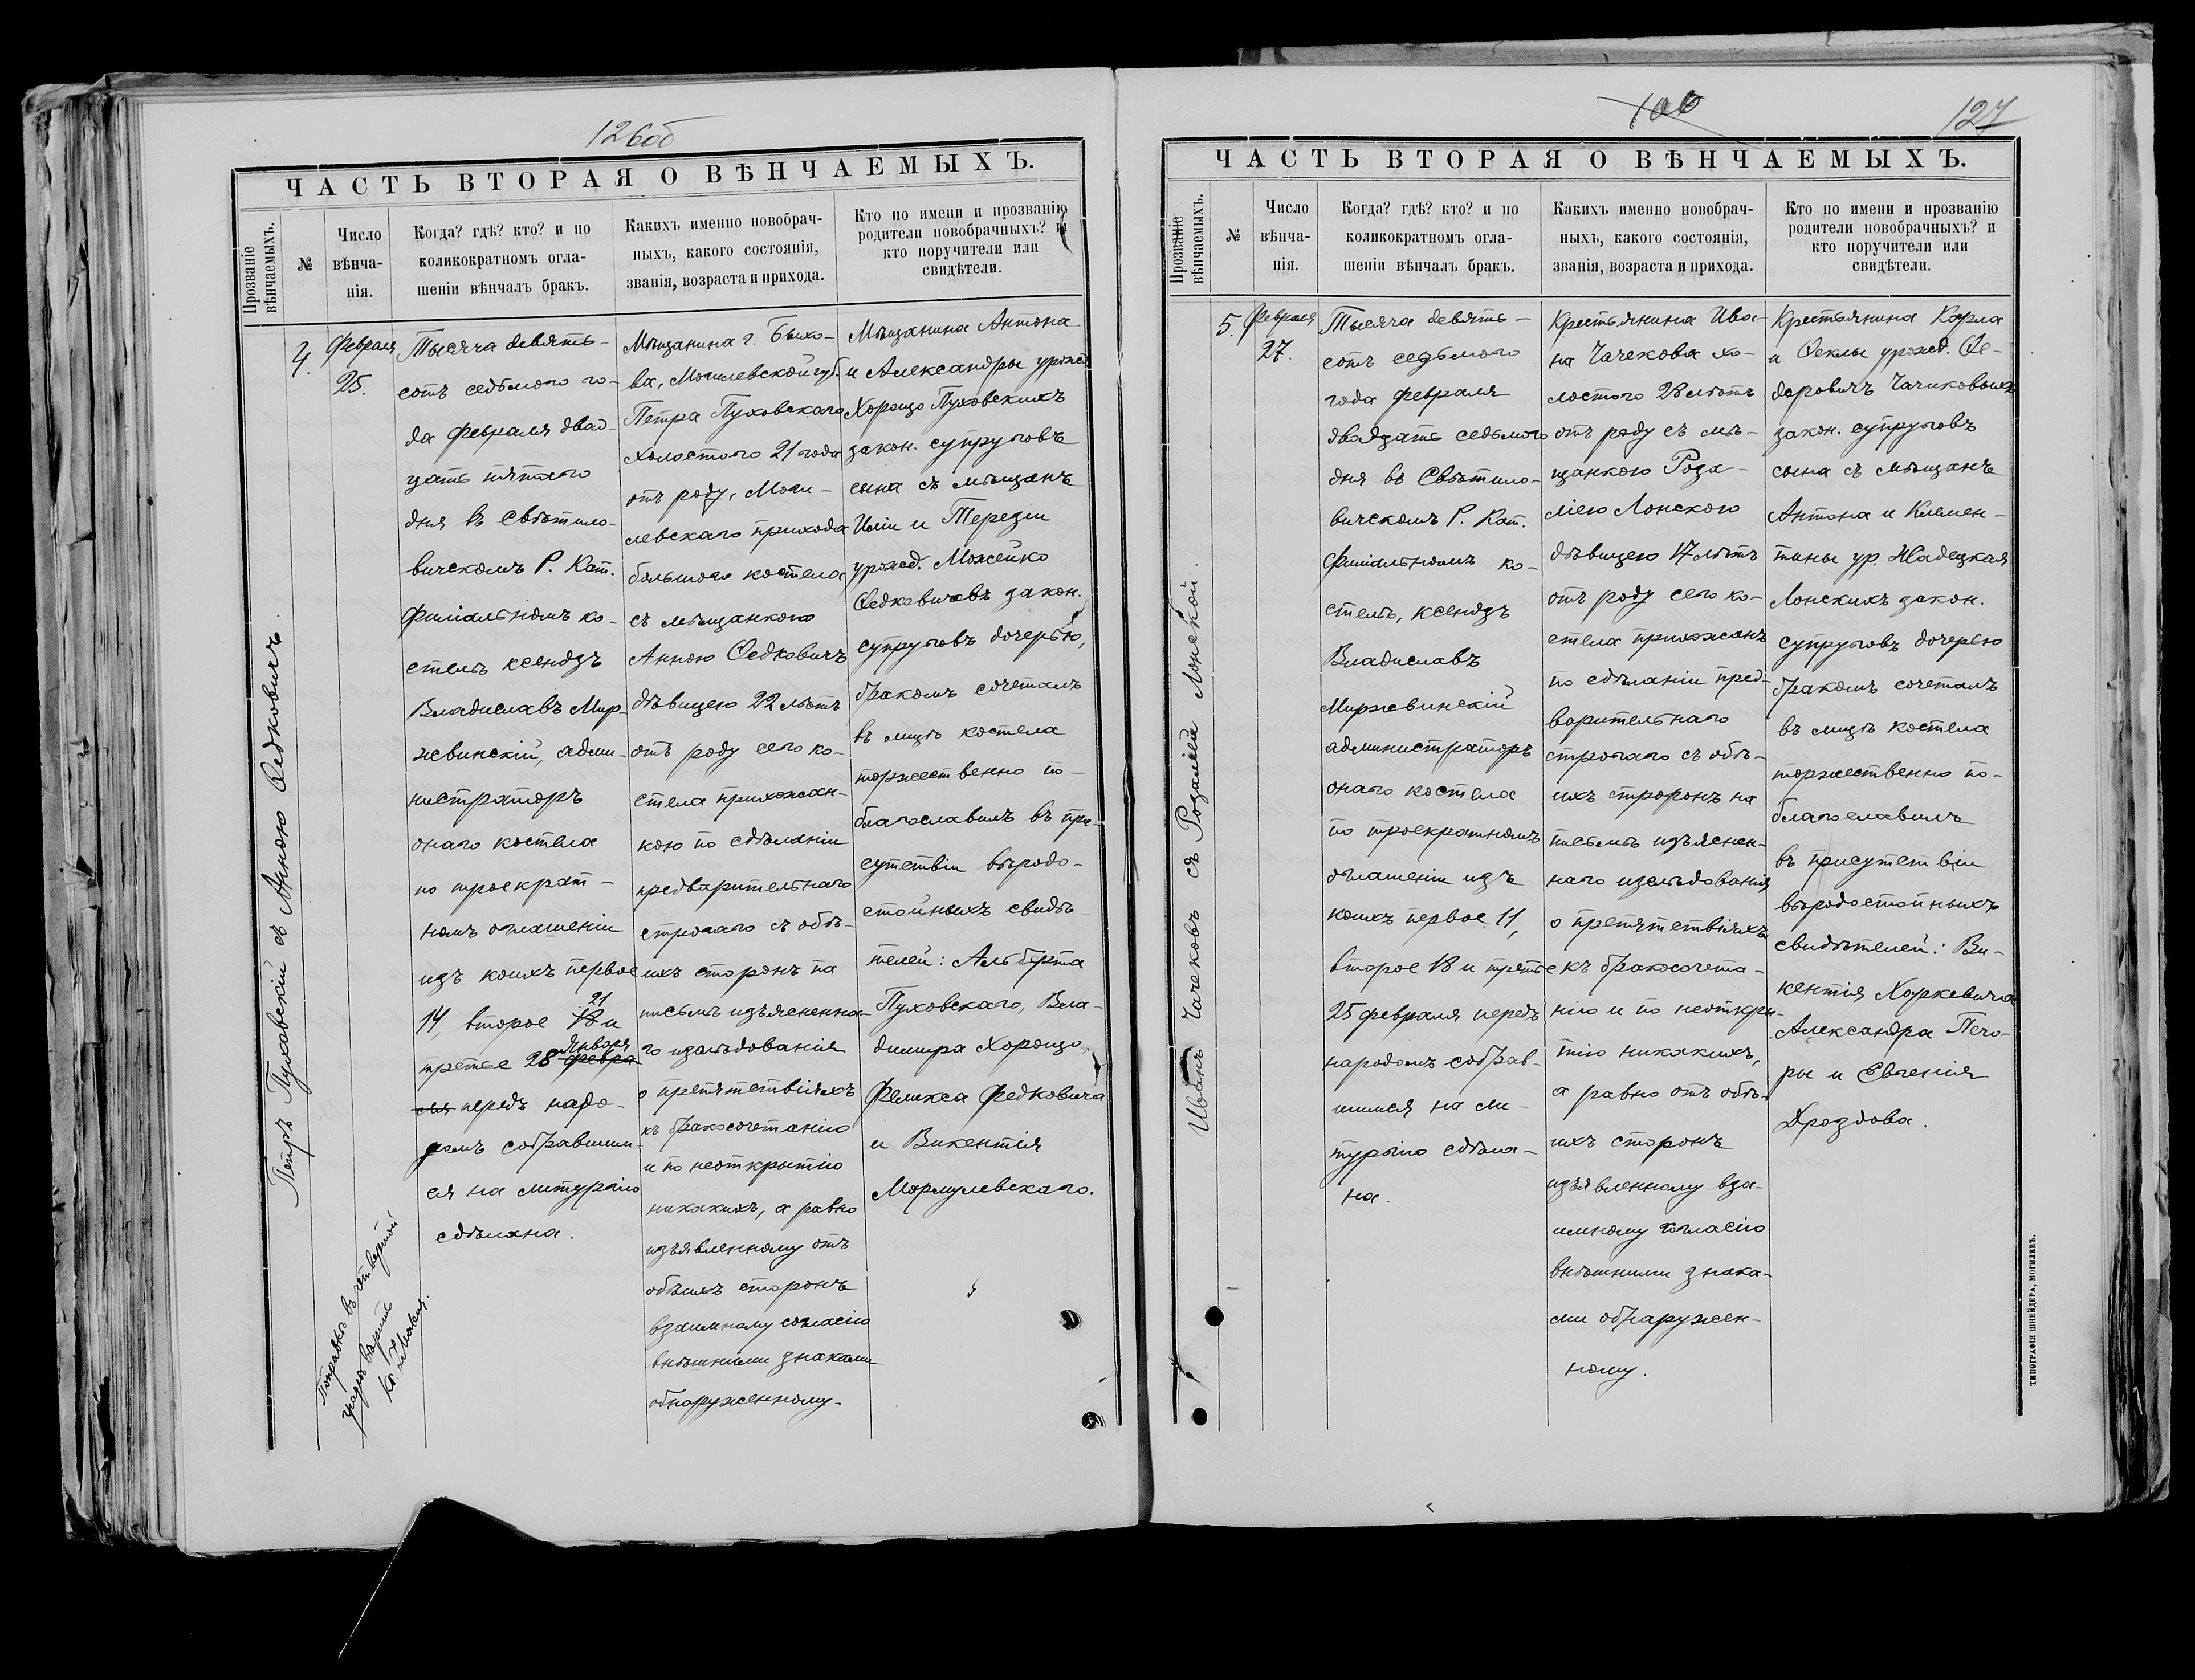 126об
ЧАСТЬ ВТОРАЯ О ВѢНЧАЕМЫХЪ.
Прозваніе
вѣнчаемыхъ.
№
Число
вѣнча-
нія.
Когда? гдѣ? кто? и по
коликократномъ огла-
шеніи вѣнчалъ бракъ.
Какихъ именно новобрач-
ныхъ, какого состоянія,
званія, возраста и прихода.
Кто по имени и прозванію
родители новобрачныхъ? и
кто поручители или
свидѣтели.
Петръ Пуховскій съ Анною Ѳедковичъ.
4.
Февраля
25.
Тысяча девять-
сотъ седьмого го-
да февраля двад-
цать пятаго
дня въ Свѣтило-
вичскомъ Р. Кат.
филіальномъ ко-
стелѣ ксендзъ
Владиславъ Мир-
жвинскій, адми-
нистраторъ
онаго костела
по троекрат-
номъ оглашеніи
изъ коихъ первое
21
14, второе 18 и
Января
третье 28 февра-
ля передъ наро-
домъ собравшим-
ся на литургію
сдѣлана.
Мѣщанина г. Быхо-
ва, Могилевской губ.
Петра Пуховскаго
холостого 21 года
отъ роду, Моги-
левскаго прихода
большого костела
съ мѣщанкою
Анною Ѳедковичъ
дѣвицею 22 лѣтъ
отъ роду сего ко-
стела прихожан-
кою по сдѣланіи
предварительнаго
строгаго съ обѣ-
ихъ сторонъ на
письмѣ изъясненна-
го изслѣдованія
о препятствіяхъ
къ бракосочетанію
и по неоткрытію
никакихъ, а равно
изъявленному отъ
обѣихъ сторонъ
взаимному согласію
внѣшними знаками
обнаруженному.
Мѣщанина Антона
и Александры урожд.
Хорощо Пуховскихъ
закон. супруговъ
сына съ мѣщанъ
Иліи и Терезіи
урожд. Можейко
Ѳедковичевъ закон.
супруговъ дочерью,
бракомъ сочеталъ
въ лицѣ костела
торжественно по-
благославилъ въ при-
сутствіи вѣродо-
стойныхъ свидѣ-
телей: Альберта
Пуховскаго, Вла-
диміра Хорощо,
Феликса Федковича
и Викентія
Мормулевскаго.
100
127
ЧАСТЬ ВТОРАЯ О ВѢНЧАЕМЫХЪ.
Прозваніе
вѣнчаемыхъ.
№
Число
вѣнча-
нія.
Когда? гдѣ? кто? и по
коликократномъ огла-
шеніи вѣнчалъ бракъ.
Какихъ именно новобрач-
ныхъ, какого состоянія,
званія, возраста и прихода.
Кто по имени и прозванію
родители новобрачныхъ? и
кто поручители или
свидѣтели.
Иванъ Чачековъ съ Розаліей Лонской.
5.
Февраля
27.
Тысяча девять-
сотъ седьмого
года февраля
двадцать седьмого
дня въ Свѣтило-
вичскомъ Р. Кат.
филіальномъ ко-
стелѣ, ксендзъ
Владиславъ
Миржвинскій
администраторъ
онаго костела
по троекратномъ
оглашеніи изъ
коихъ первое 11,
второе 18 и третье
25 февраля передъ
народомъ собрав-
шимся на ли-
тургію сдѣла-
на.
Крестьянина Ива-
на Чачекова хо-
лостого 28 лѣтъ
отъ роду съ мѣ-
щанкою Роза-
ліею Лонскою
дѣвицею 17 лѣтъ
отъ роду сего ко-
стела прихожанъ
по сдѣланіи пред-
варительнаго
строгаго съ обѣ-
ихъ сторонъ на
письмѣ изъяснен-
наго изслѣдованія
о препятствіяхъ
къ бракосочета-
нію и по неоткры-
тію никакихъ,
а равно отъ обѣ-
ихъ сторонъ
изъявленному вза-
имному согласію
внѣшними знака-
ми обнаружен-
ному.
Крестьянина Карла
и Ѳеклы урожд. Ѳе-
доровичъ Чачиковыхъ
закон. супруговъ
сына съ мѣщанъ
Антона и Клемен-
тины ур. Жадецкая
Лонскихъ закон.
супруговъ дочерью
бракомъ сочеталъ
въ лицѣ костела
торжественно по-
благославилъ
въ присутствіи
вѣродостойныхъ
свидѣтелей: Ви-
кентія Харкевича
Александра Печо-
ры и Евгенія
Дроздова.
ТИПОГРАФІЯ ШНЕЙДЕРА, МОГИЛЕВЪ.